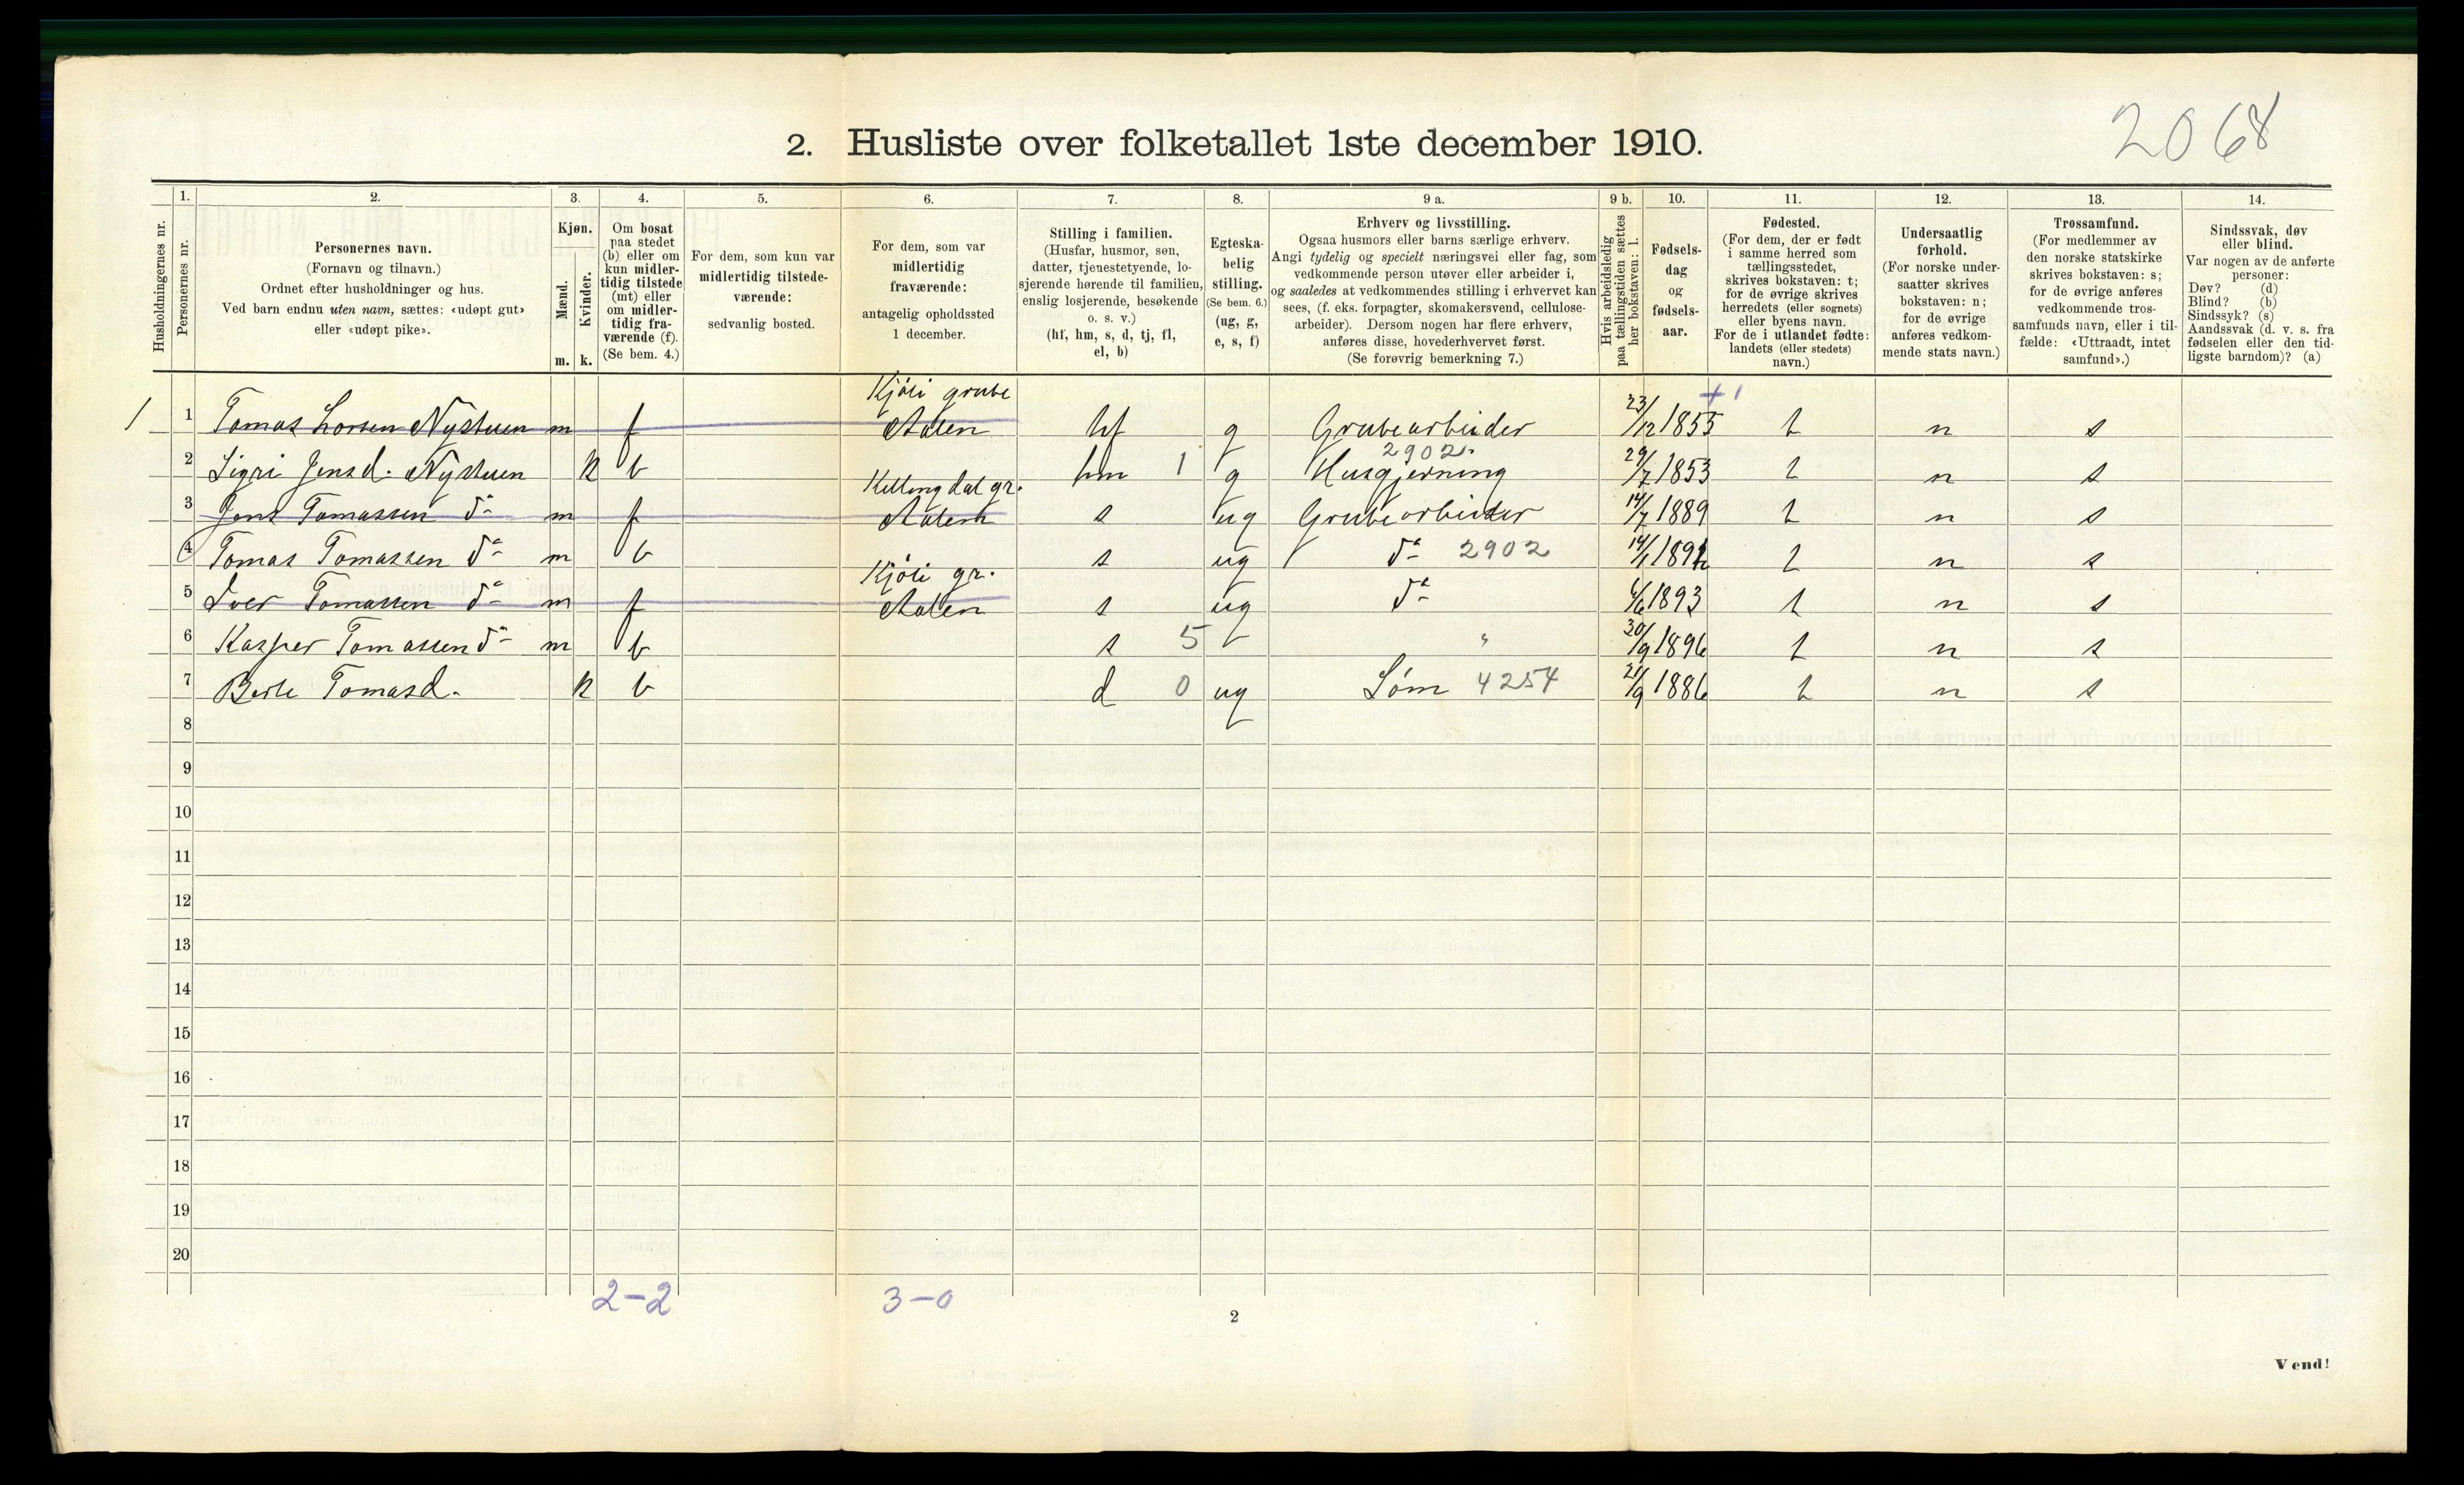 2068
2. Husliste over folketallet 1ste december 1910.
Husholdningernes nr.
1. Personernes nr.
2. Personernes navn. (Fornavn og tilnavn.) Ordnet efter husholdninger og hus. Ved barn endnu uten navn, sættes: «udøpt gut» eller «udøpt pike».
3. Kjøn. Mænd. m. Kvinder. k.
4. Om bosat paa stedet (b) eller om kun midlertidig tilstede (mt) eller om midlertidig fraværende (f). (Se bem. 4.)
5. For dem, som kun var midlertidig tilstedeværende: sedvanlig bosted.
6. For dem, som var midlertidig fraværende: antagelig opholdssted 1 december.
7. Stilling i familien. (Husfar, husmor, søn, datter, tjenestetyende, losjerende hørende til familien, enslig losjerende, besøkende o. s. v.) (hf, hm, s, d, tj, fl, el, b)
8. Egteskabelig stilling. (Se bem. 6.) (ug, g, e, s, f)
9 a. Erhverv og livsstilling. Ogsaa husmors eller barns særlige erhverv. Angi tydelig og specielt næringsvei eller fag, som vedkommende person utøver eller arbeider i, og saaledes at vedkommendes stilling i erhvervet kan sees, (f. eks. forpagter, skomakersvend, cellulosearbeider). Dersom nogen har flere erhverv, anføres disse, hovederhvervet først. (Se forøvrig bemerkning 7.)
9 b. Hvis arbeidsledig paa tællingstiden sættes her bokstaven: l.
10. Fødselsdag og fødselsaar.
11. Fødested. (For dem, der er født i samme herred som tællingsstedet, skrives bokstaven: t; for de øvrige skrives herredets (eller sognets) eller byens navn. For de i utlandet fødte: landets (eller stedets) navn.)
12. Undersaatlig forhold. (For norske undersaatter skrives bokstaven: n; for de øvrige anføres vedkommende stats navn.)
13. Trossamfund. (For medlemmer av den norske statskirke skrives bokstaven: s; for de øvrige anføres vedkommende trossamfunds navn, eller i tilfælde: «Uttraadt, intet samfund».)
14. Sindssvak, døv eller blind. Var nogen av de anførte personer: Døv? (d) Blind? (b) Sindssyk? (s) Aandssvak (d. v. s. fra fødselen eller den tidligste barndom)? (a)
1 1 Tomas Larsen Nystuen m f Kjøli grube Aalen hf g Grubearbeider 2902. 23/12 1855 +1 t n s
2 Sigri Jensd. Nystuen k b hm 1 g Husgjerning 29/7 1853 t n s
3 Jens Tomassen do m f Killingdal gr. Aalen s ug Grubearbeider 14/7 1889 t n s
4 Tomas Tomassen do m b s ug do 2902 14/1 1891 t n s
5 Iver Tomassen do m f Kjøli gr. Aalen s ug do 6/6 1893 t n s
6 Kasper Tomassen do m b s 5 - " 30/9 1896 t n s
7 Berte Tomasd. k b d 0 ug Søm 4254 21/9 1886 t n s
8
9
10
11
12
13
14
15
16
17
18
19
20
2-2 3-0
2
Vend!